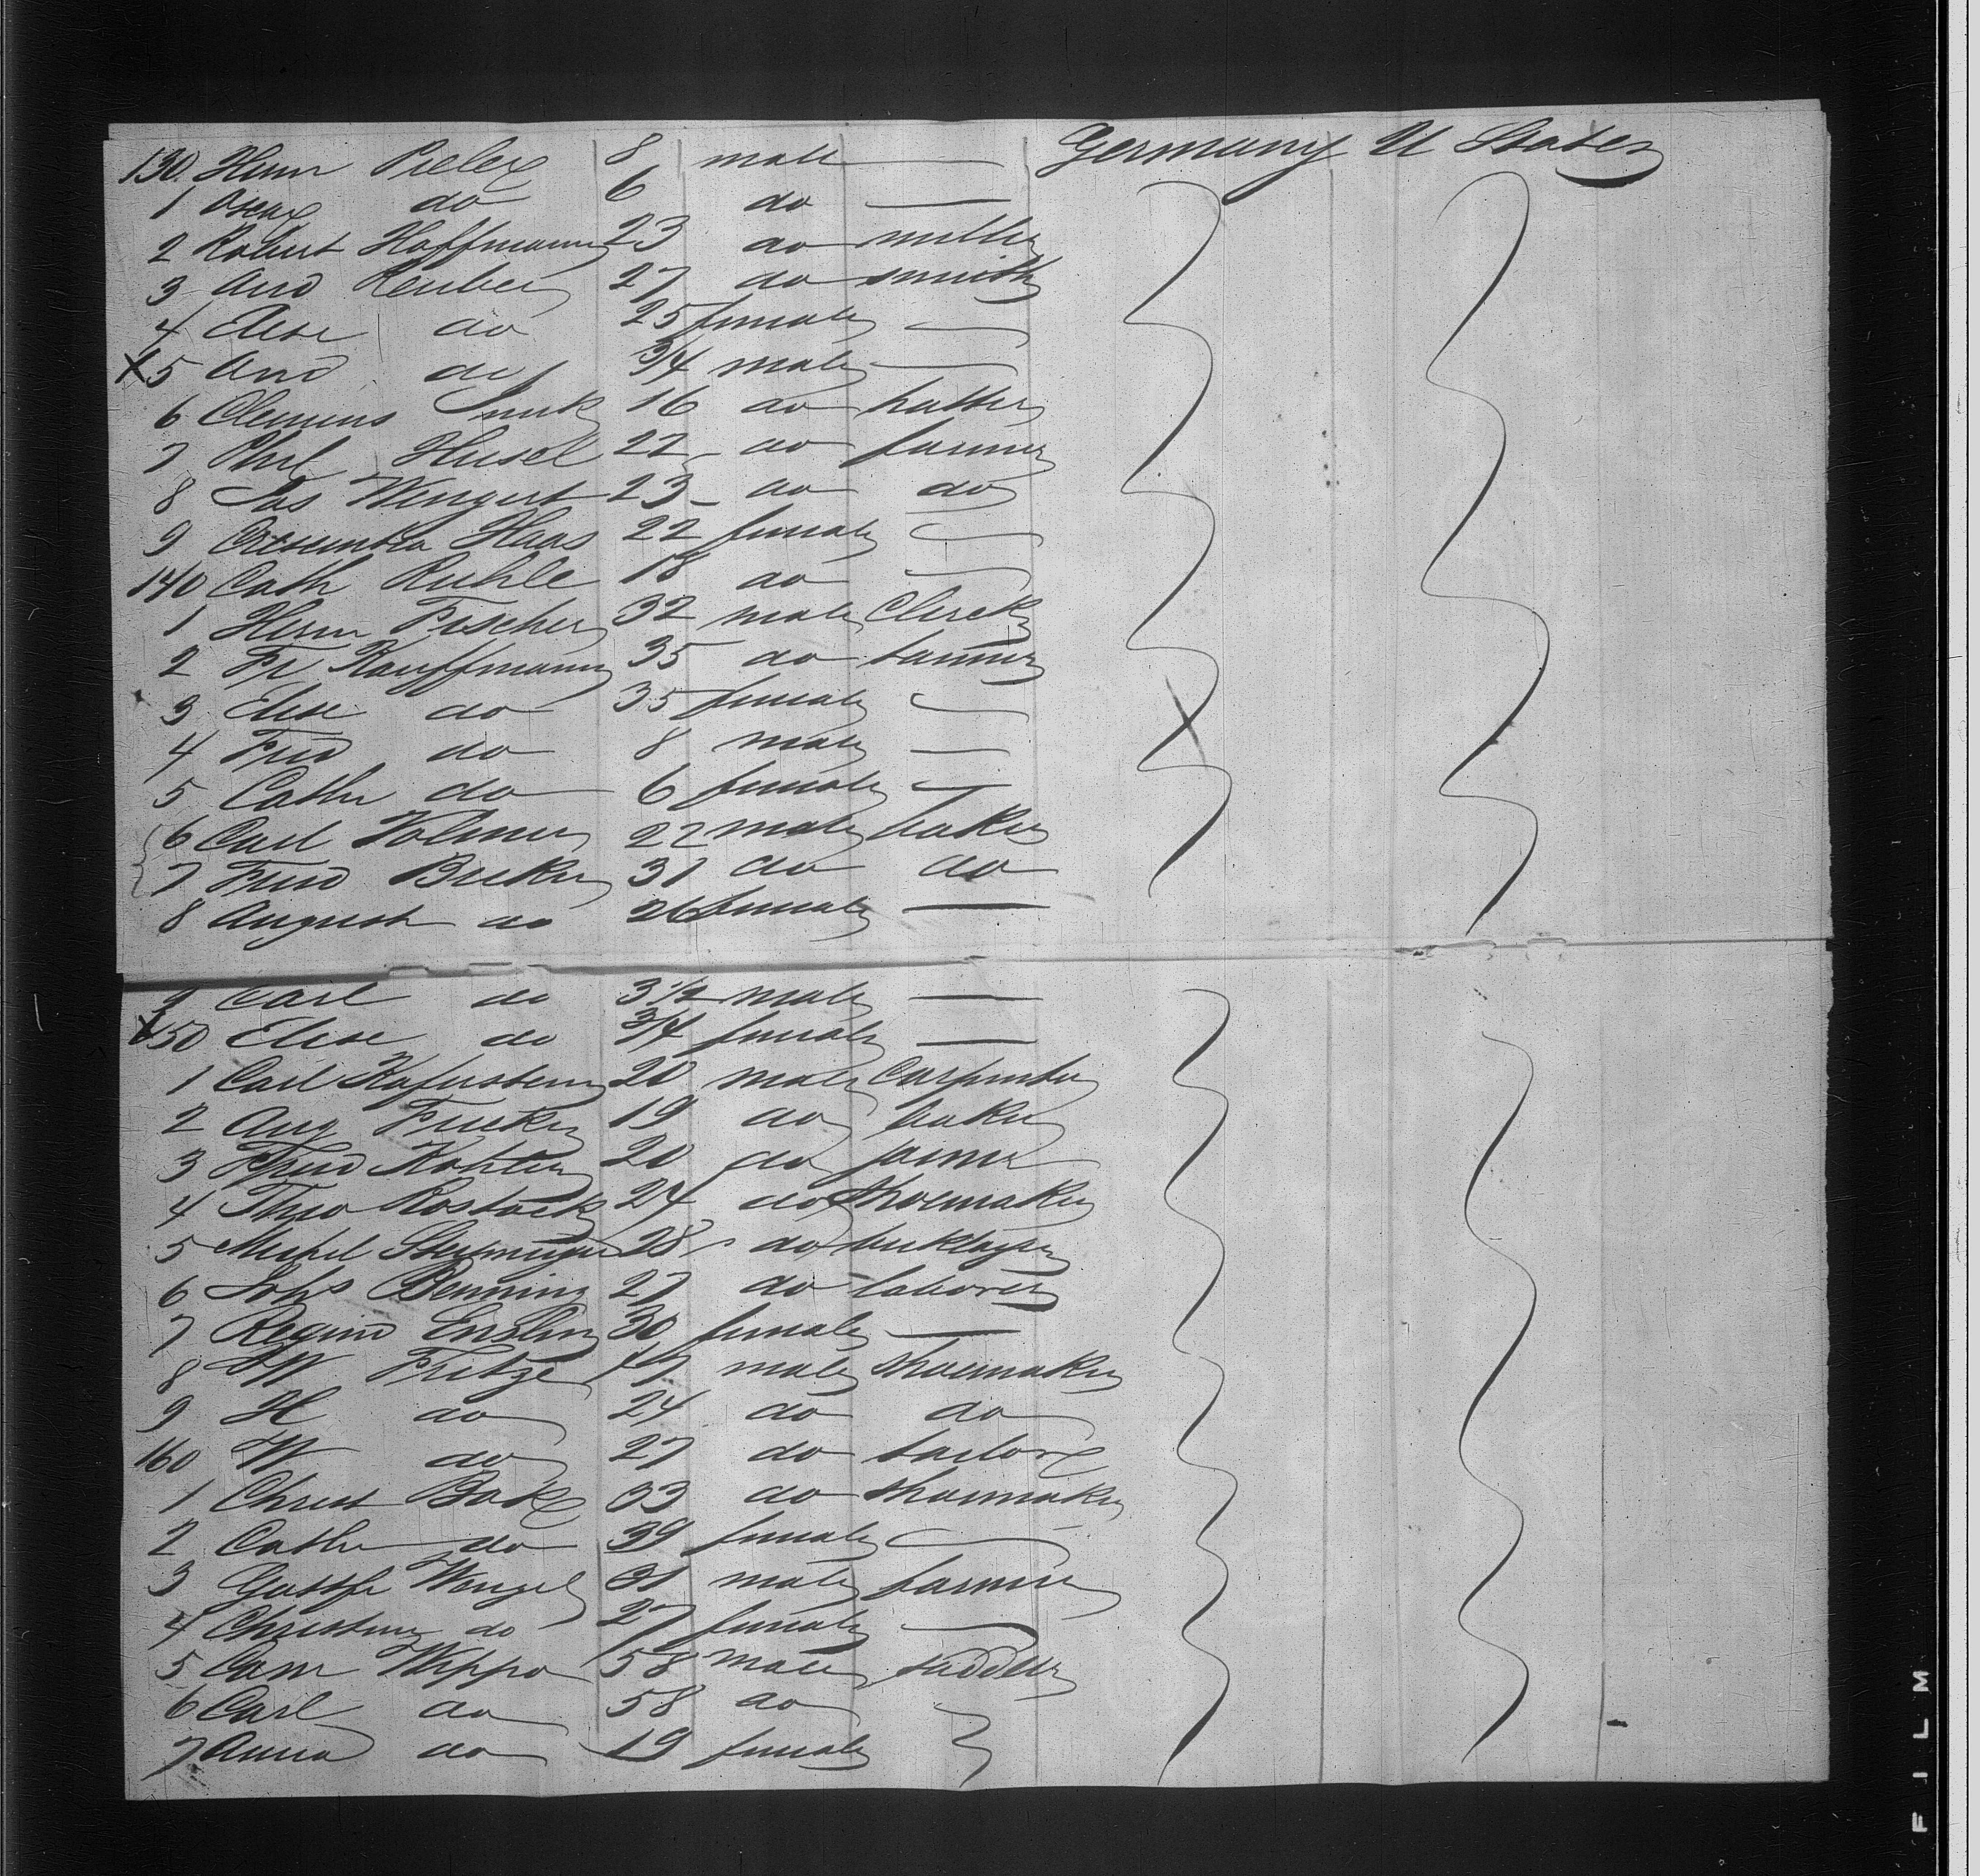 130 Herm Pielex 8 male — Germany U States
1 Oscar do 6 do —
2 Robert Hoffmann 23 do miller
3 And Reuber 27 do smith
4 Elise do 25 female —
X5 And do 3/4 male —
6 Clemens 16 do hatter
7 Phil Husel 22 do farmer
8 Jos Wengert 23 do do
9 Crescentia Haas 22 female —
140 Cath Ruhle 18 do —
1 Herm Fischer 32 male Clerck
2 Fr Kauffmann 35 do farmer
3 Elise do 35 female —
4 Fred do 8 male —
5 Cathr do 6 female —
6 Carl Volmer 22 male baker
7 Fred Becker 31 do do
8 August do 26 female —
9 Carl do 3 1/2 male —
X150 Elise do 3/4 female —
1 Carl Haferstern 20 male Carpenter
2 Aug Fricke 19 do baker
3 Fried Kohler 20 do joiner
4 Theo Rostock 24 do Shoemaker
5 Michel 28 do
6 Johs Benning 27 do laborer
7 Regina Enslin 30 female —
8 Fritze male shoemaker
9 H do 24 do do
160 W do 27 do tailore
1 Christ Bake 33 do shoemaker
2 Cathr do 39 female —
3 Gottfr Wenzel 31 male farmer
4 Christine do 27 female —
5 Wippo 58 male saddler
6 Carl do 58 do
7 Anna do 19 female
FILM